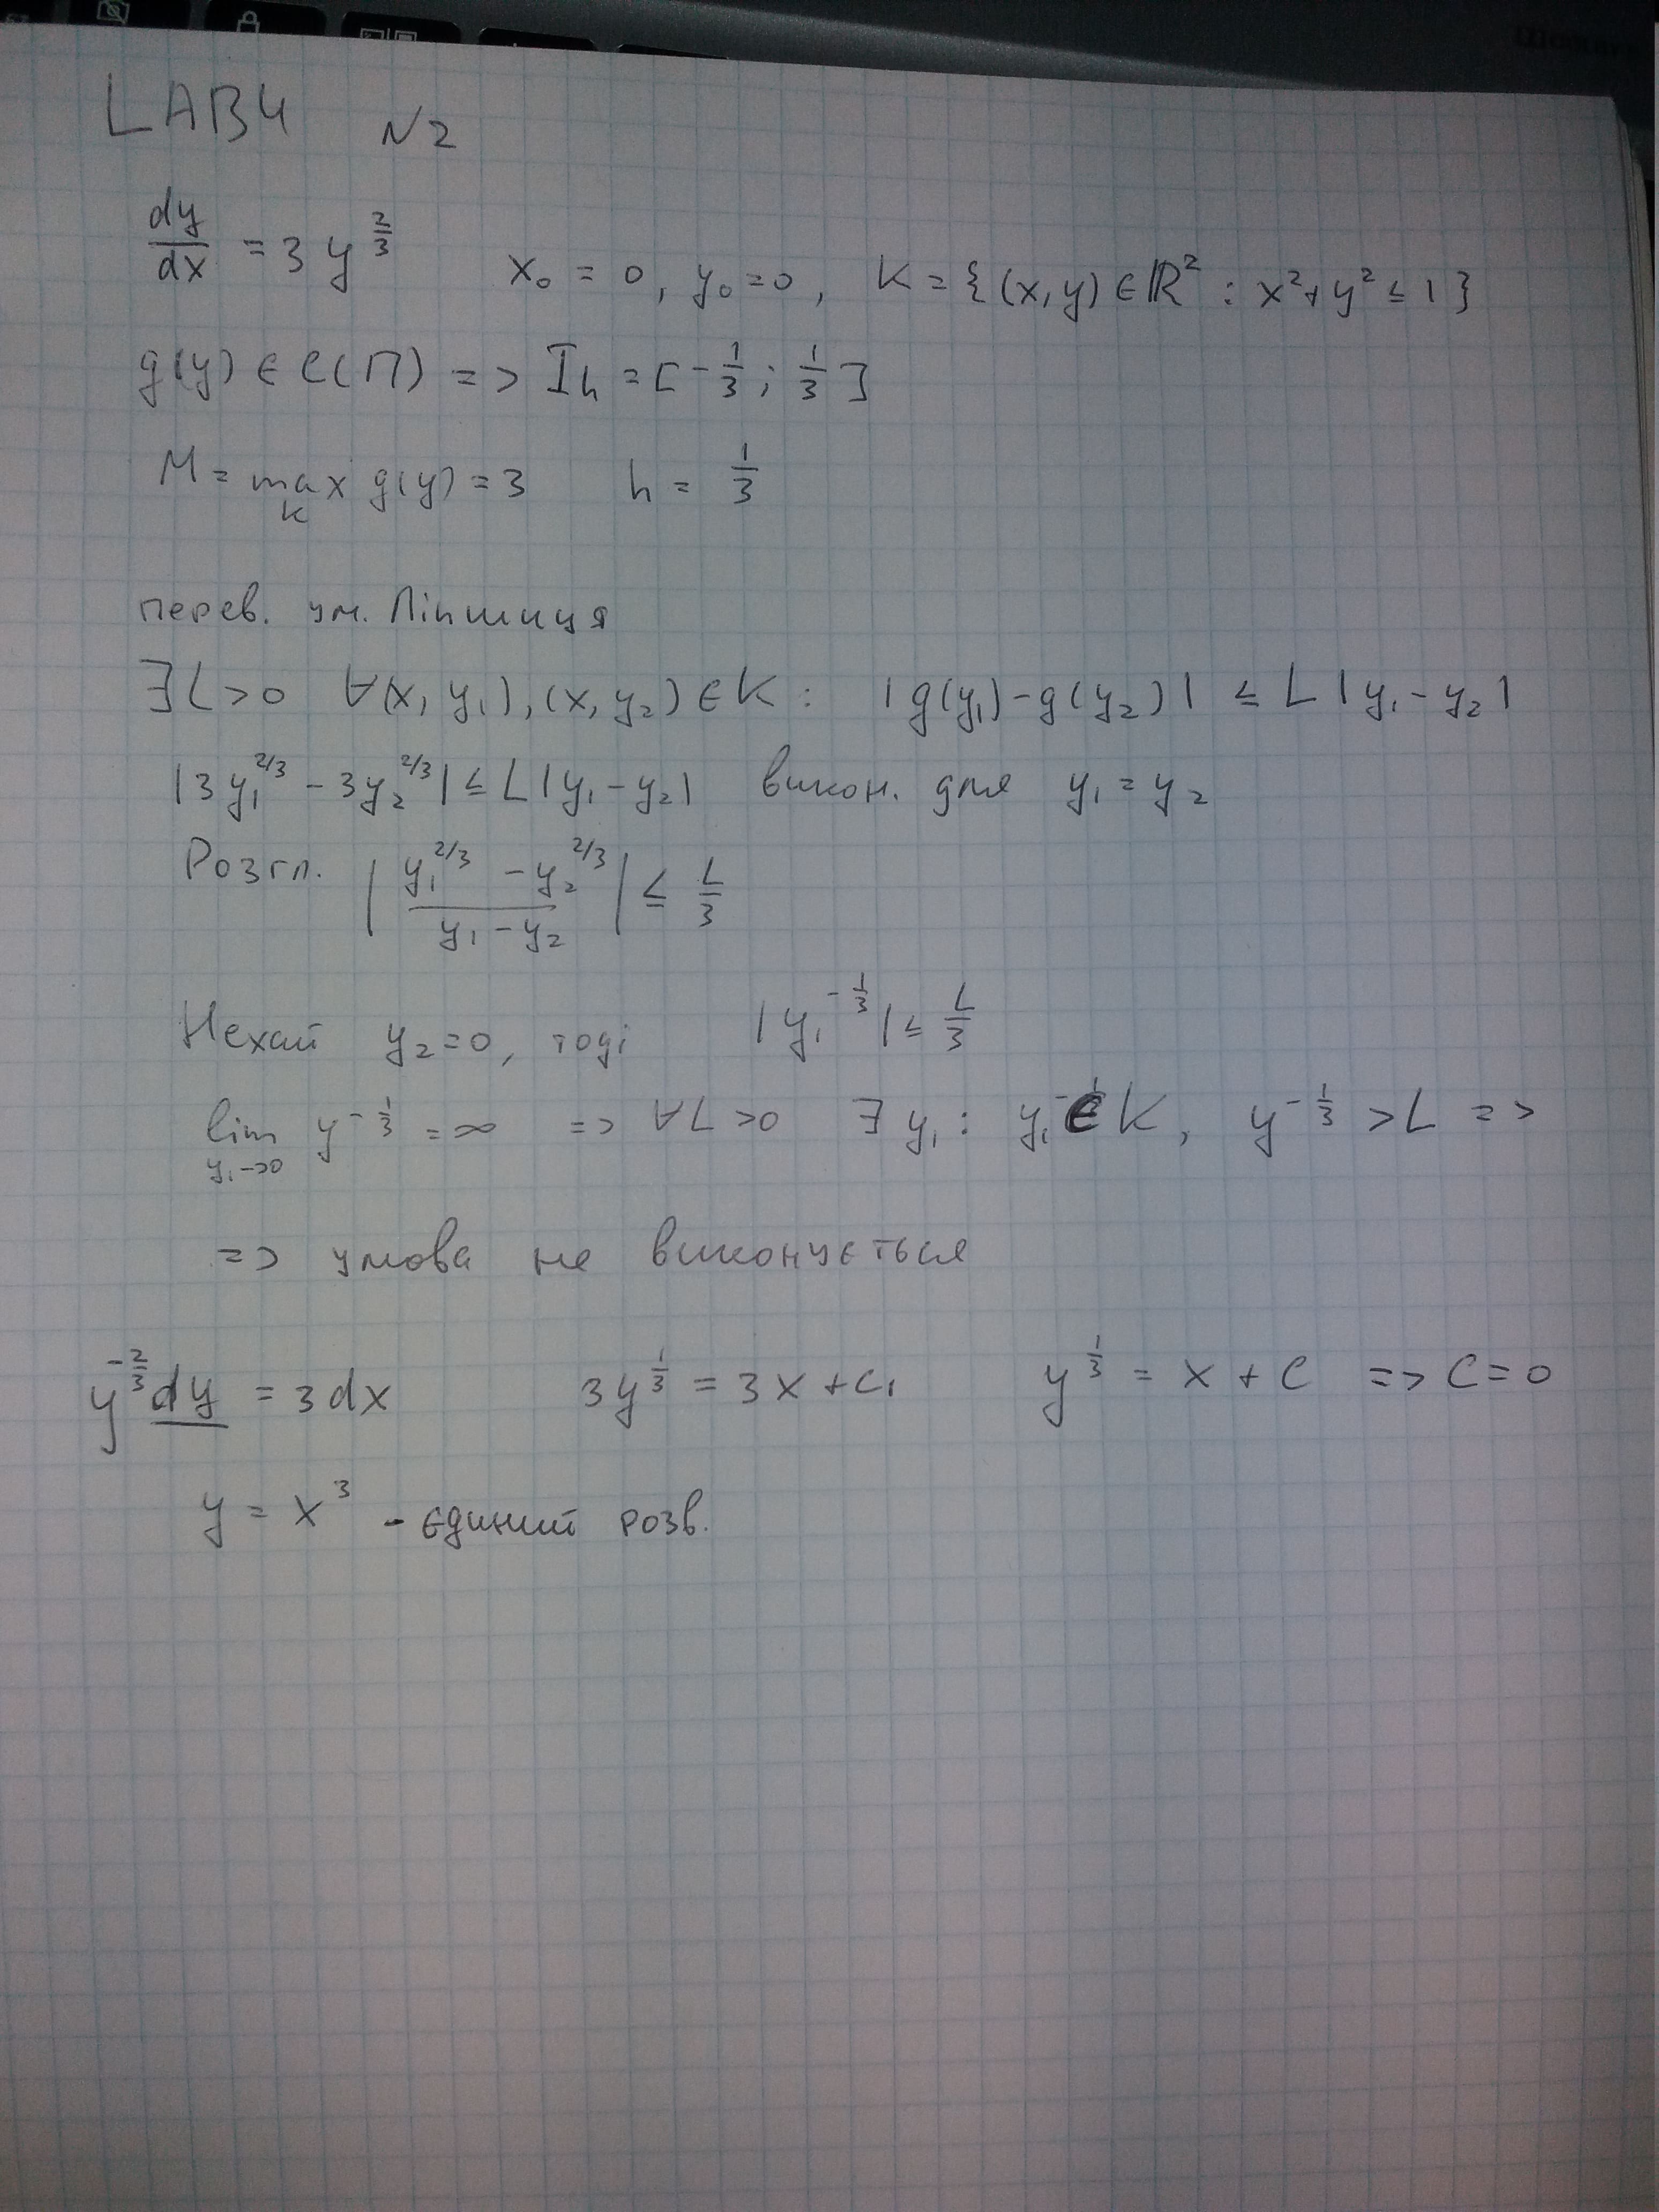 LAB4 N2
dy/dx = 3y^(2/3) x₀ = 0, y₀ = 0, K = {(x, y) ∈ ℝ² : x² + y² ≤ 1}
g(y) ∈ C(П) => I_h = [-1/3; 1/3]
M = max_K g(y) = 3 h = 1/3
перев. ум. Ліпшиця
∃L>0 ∀(x, y₁), (x, y₂) ∈ K : |g(y₁) - g(y₂)| ≤ L|y₁ - y₂|
|3y₁^(2/3) - 3y₂^(2/3)| ≤ L|y₁ - y₂| викон. для y₁ = y₂
Розгл. |(y₁^(2/3) - y₂^(2/3))/(y₁ - y₂)| ≤ L/3
Нехай y₂ = 0, тоді |y₁^(-1/3)| ≤ L/3
lim_(y₁→0) y^(-1/3) = ∞ => ∀L>0 ∃y₁ : y₁ ∈ K, y^(-1/3) > L =>
=> умова не виконується
y^(-2/3) dy = 3dx 3y^(1/3) = 3x + C₁ y^(1/3) = x + C => C = 0
y = x³ - єдиний розв.